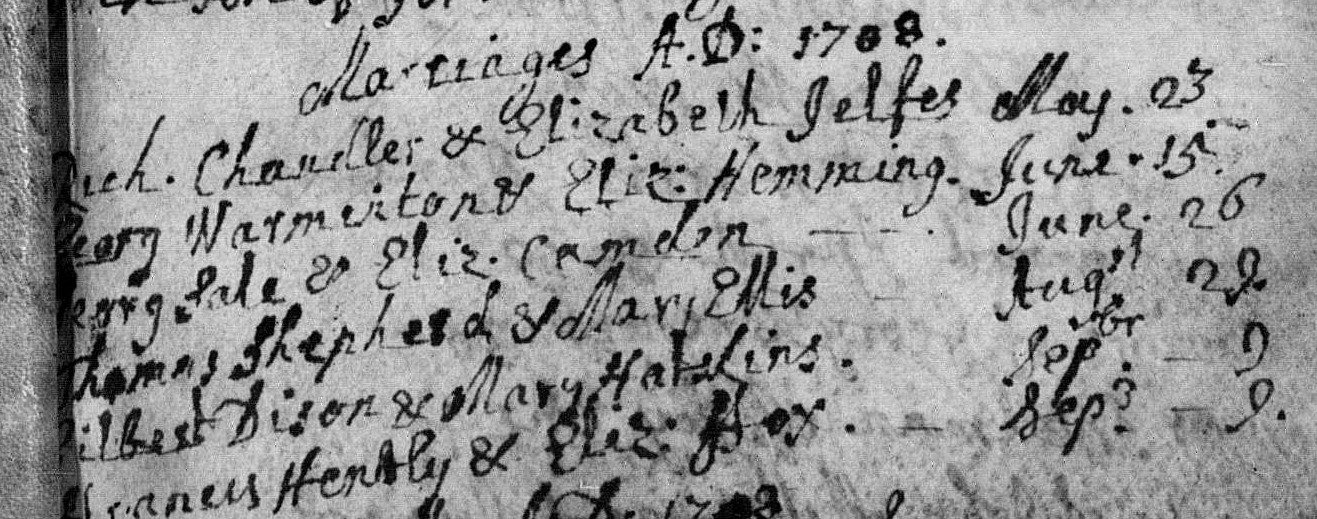 Marriages A.D: 1708.
Rich. Chandler & Elizabeth Jelfes May. 23
Georg Warmerton & Eliz: Hemming. June. 15.
Georg Sale & Eliz. Camden - - - . June. 26
Thomas Shepherd & Mary Ellis - Augst 29.
Gilbert Dison & Mary Hawkins. Sepbr. - 9
Francis & Eliz: Box. - Sep. - 9.